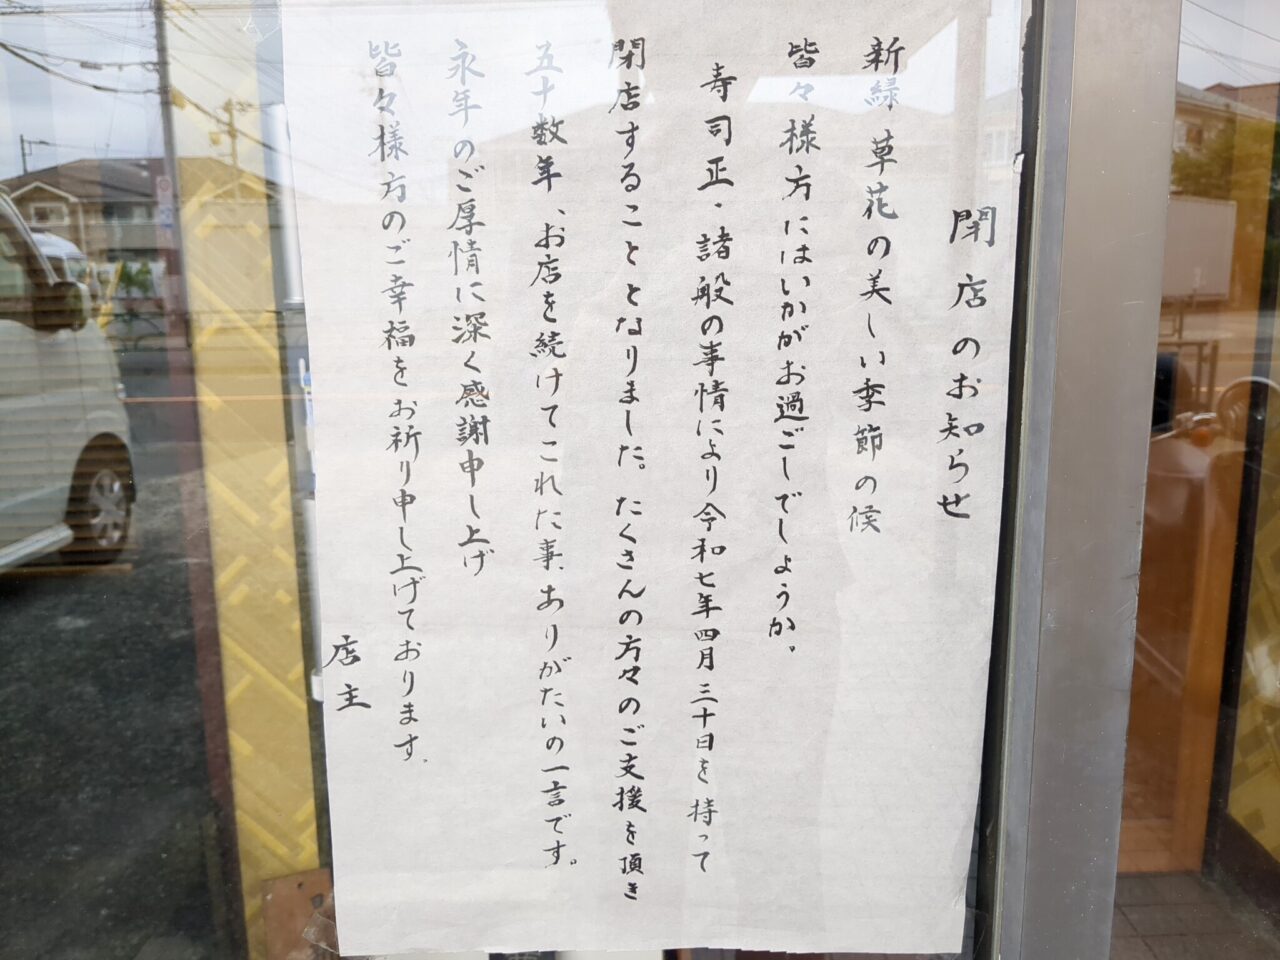 閉店のお知らせ
新緑 草花の美しい季節の候
皆々様方にはいかがお過ごしでしょうか。
寿司正・諸般の事情により令和七年四月三十日を持って
閉店することとなりました。たくさんの方々のご支援を頂き
五十数年、お店を続けてこれた事、ありがたいの一言です。
永年のご厚情に深く感謝申し上げ
皆々様方のご幸福をお祈り申し上げております。
店主